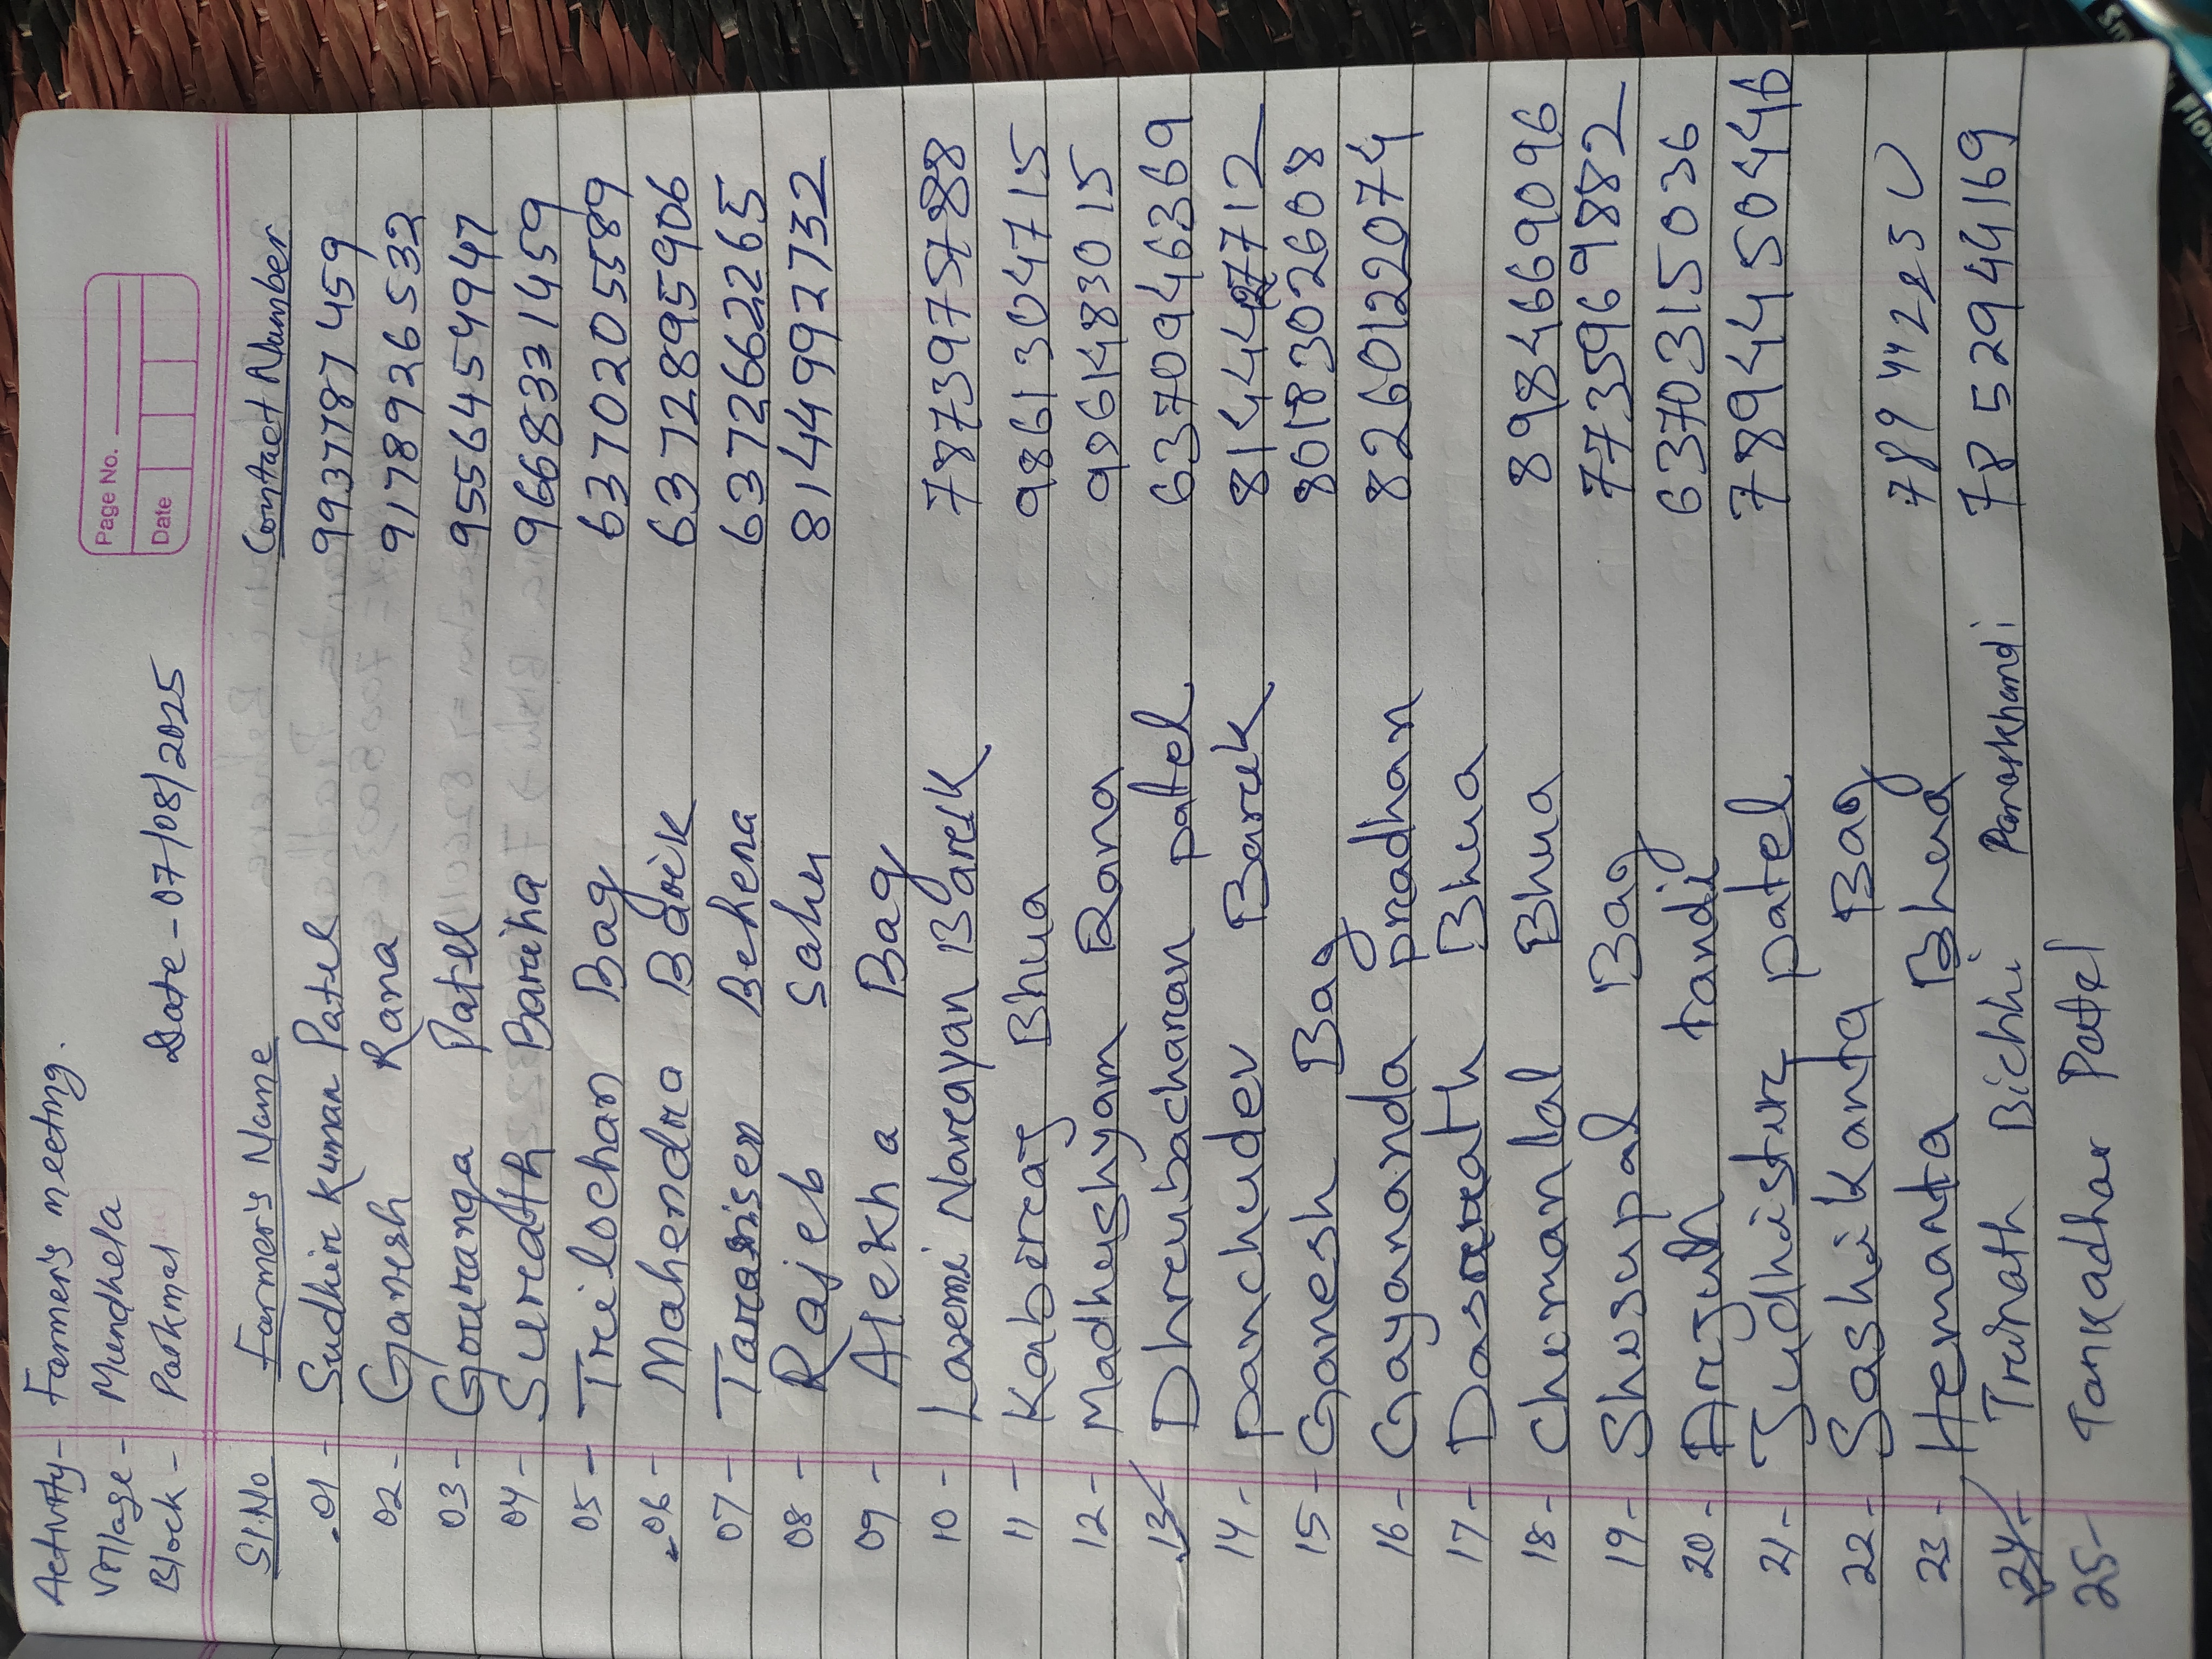 Activity - Farmer's meeting.
Village - Mundhela
Block - Paikmal Date - 07/08/2025
Page No.
Date
Sl.No Farmer's Name Contact Number
01 - Sudhir Kumar Patel 9937787459
02 - Ganesh Rana 9178926532
03 - Gouranga Patel 9556454947
04 - Suredth Bariha 9668331459
05 - Trilochan Bag 6370205589
06 - Mahendra Barik 6372895906
07 - Tarasisen Behera 6372662265
08 - Rajeb Sahu 8144992732
09 - Alekha Bag
10 - Laxmi Narayan Barik 7873975788
11 - Kabiraj Bhua 9861304715
12 - Madhushyam Rana 9861483015
13 - Dhrubacharan patel 6370946369
14 - panchudev Barik 8144427712
15 - Ganesh Bag 8018302608
16 - Gayananda pradhan 8260122074
17 - Dasarath Bhua
18 - Chemanlal Bhua 8984669096
19 - Shusupal Bag 7735969882
20 - Arjun tandi 6370315036
21 - Judhistir patel 7894450446
22 - Sashikanta Bag
23 - Hemanta Bhua
24 - Trinath Bichhi Panoskhandi 7852944169
25 - Tankadhar Patel